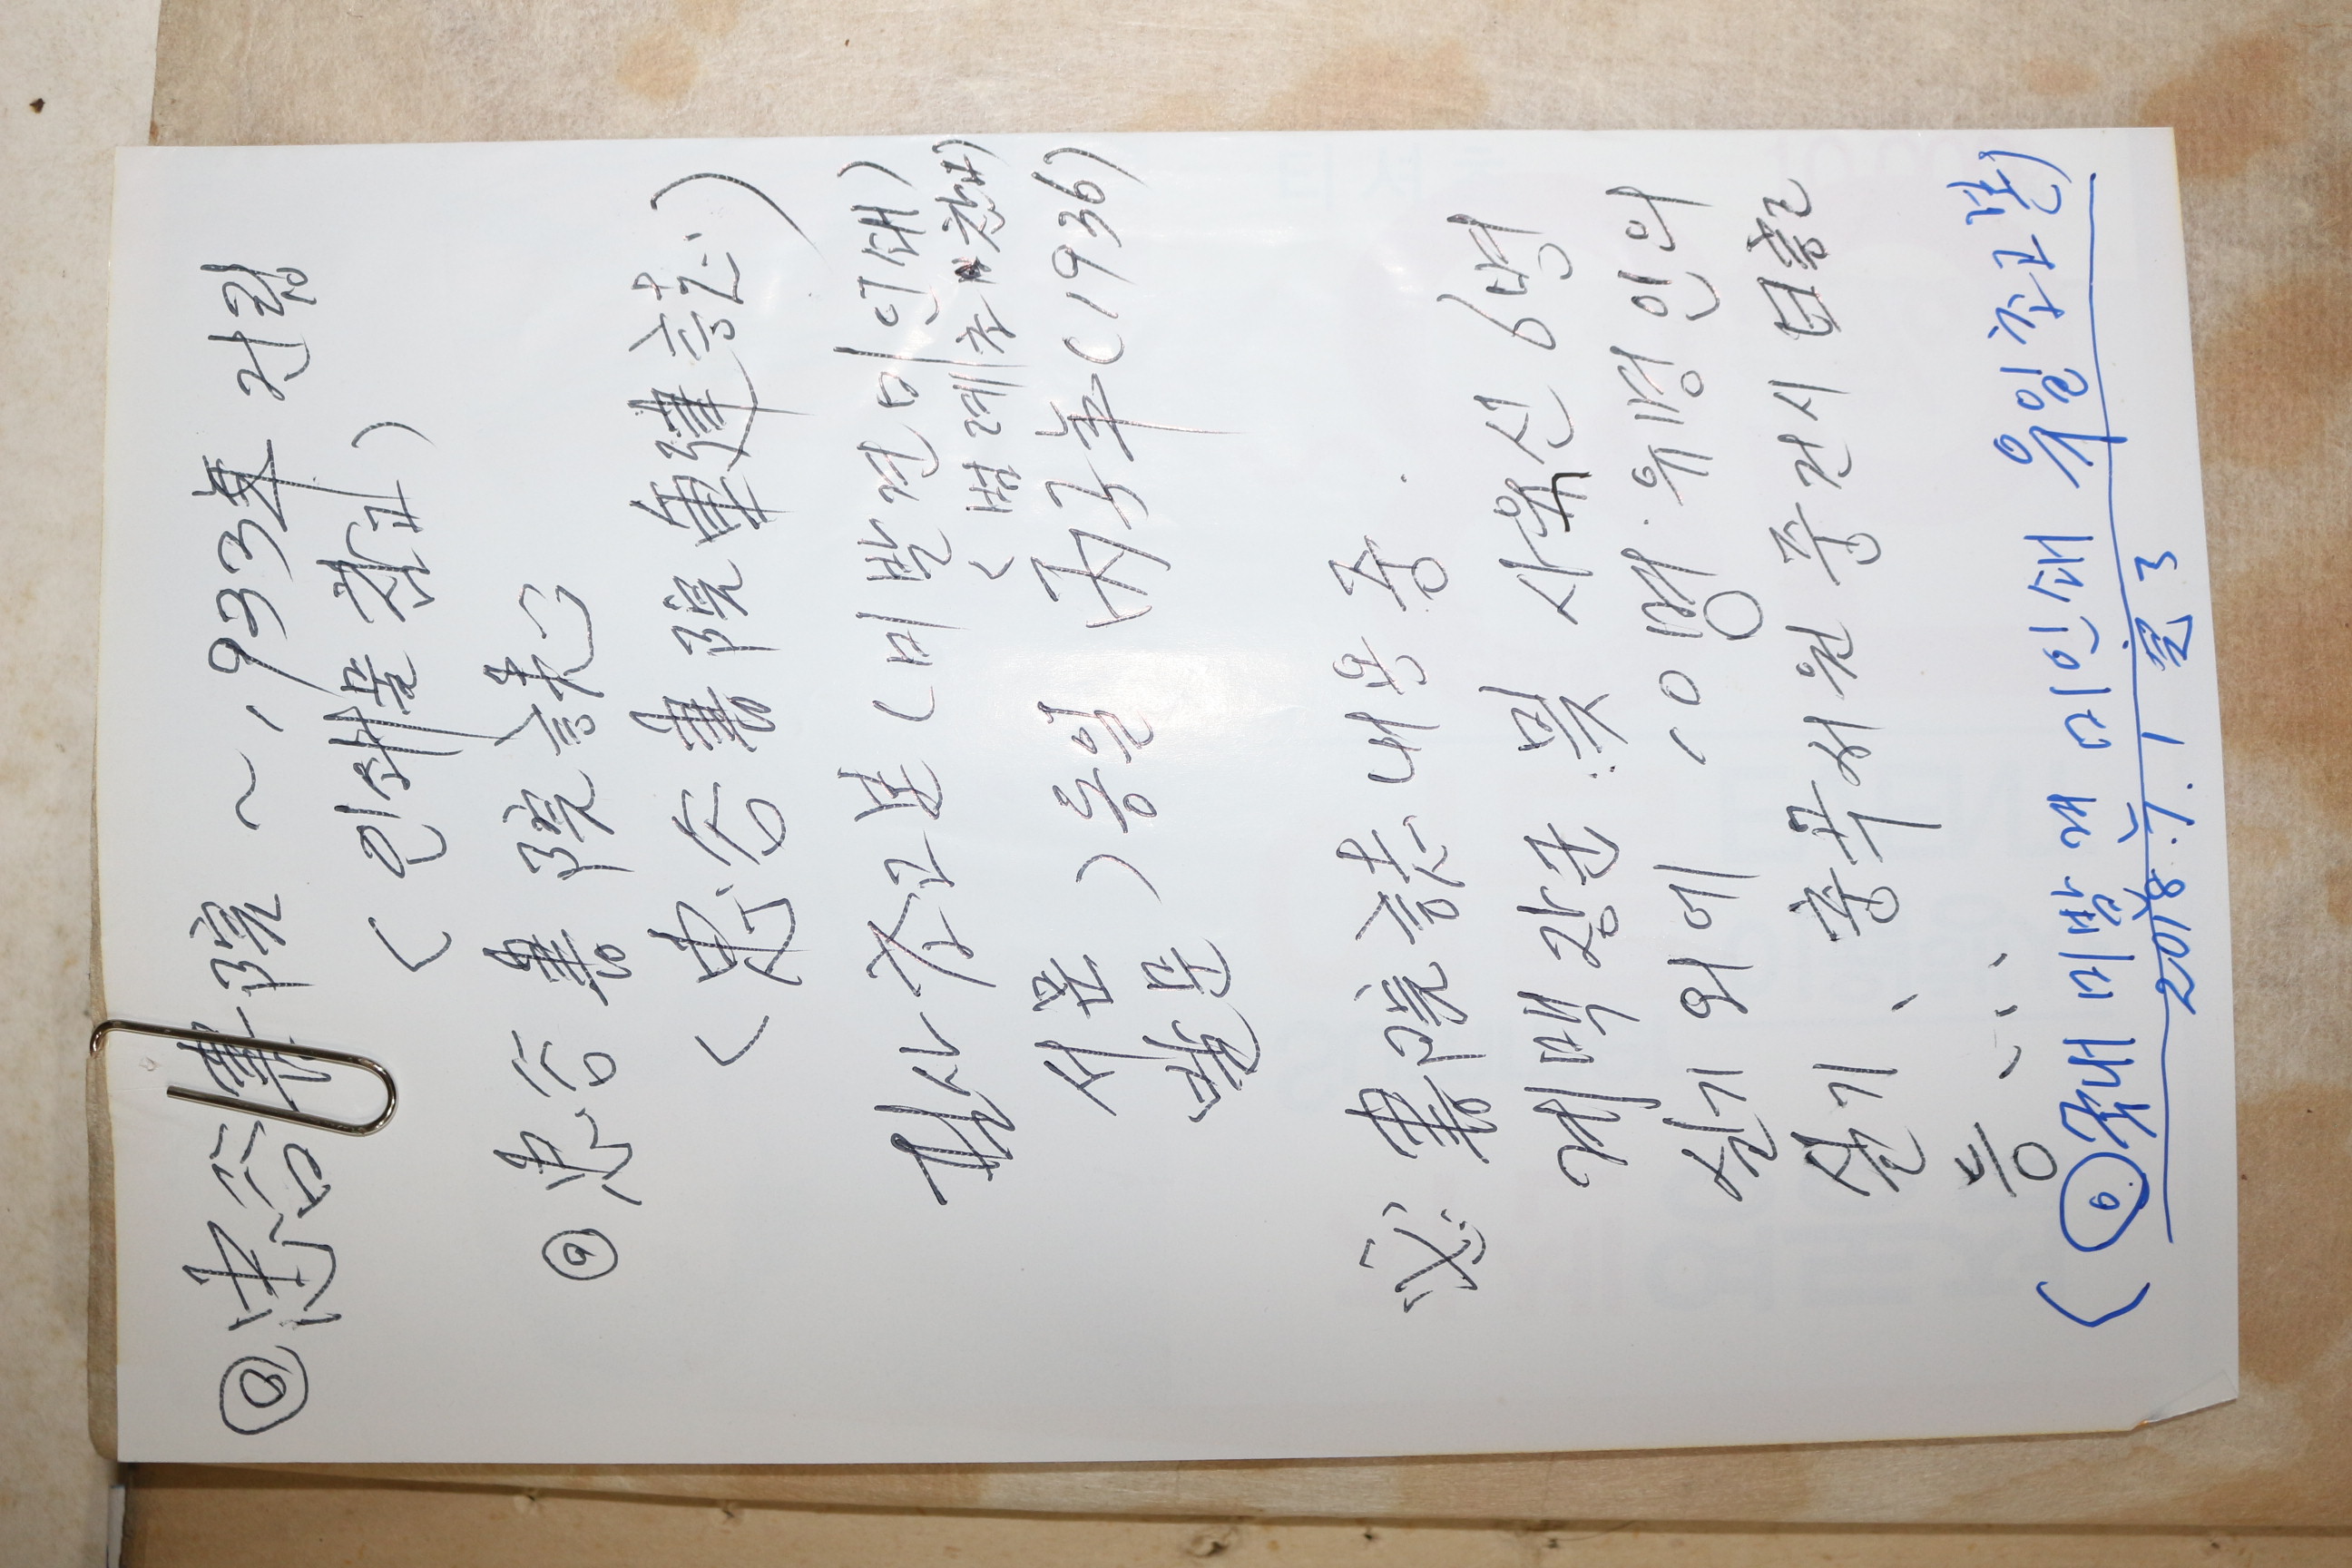 ◎ 忠谷書院 ~ 1933年 건립
(인쇄물 참고)
◎ 忠谷書院誌
(忠谷書院重建誌)
필사 초고본 (미발견 미인쇄)
(범례 초 참고)
서문
) 동일 丙子年 (1936)
발문
書院誌 내용 중.
계백장군 및 사육신 6명
실기 외에 10명 유명인의
실기, 충곡서원 중건시 日記
등....
(◎국내 미발견 미인쇄 유일초고본)
2018.7.1